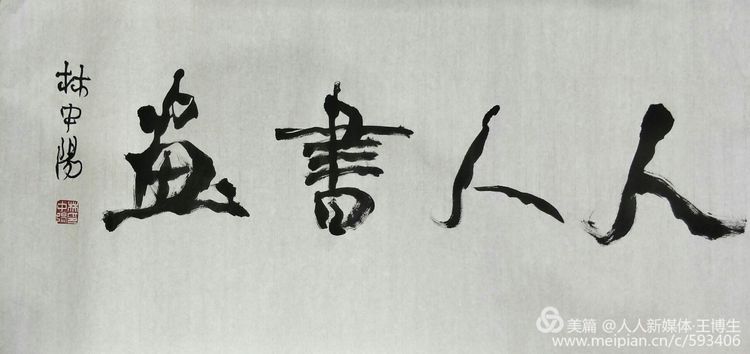 人人書畫
林中陽
美篇 @人人新媒体·王博生
www.meipian.cn/c/593406